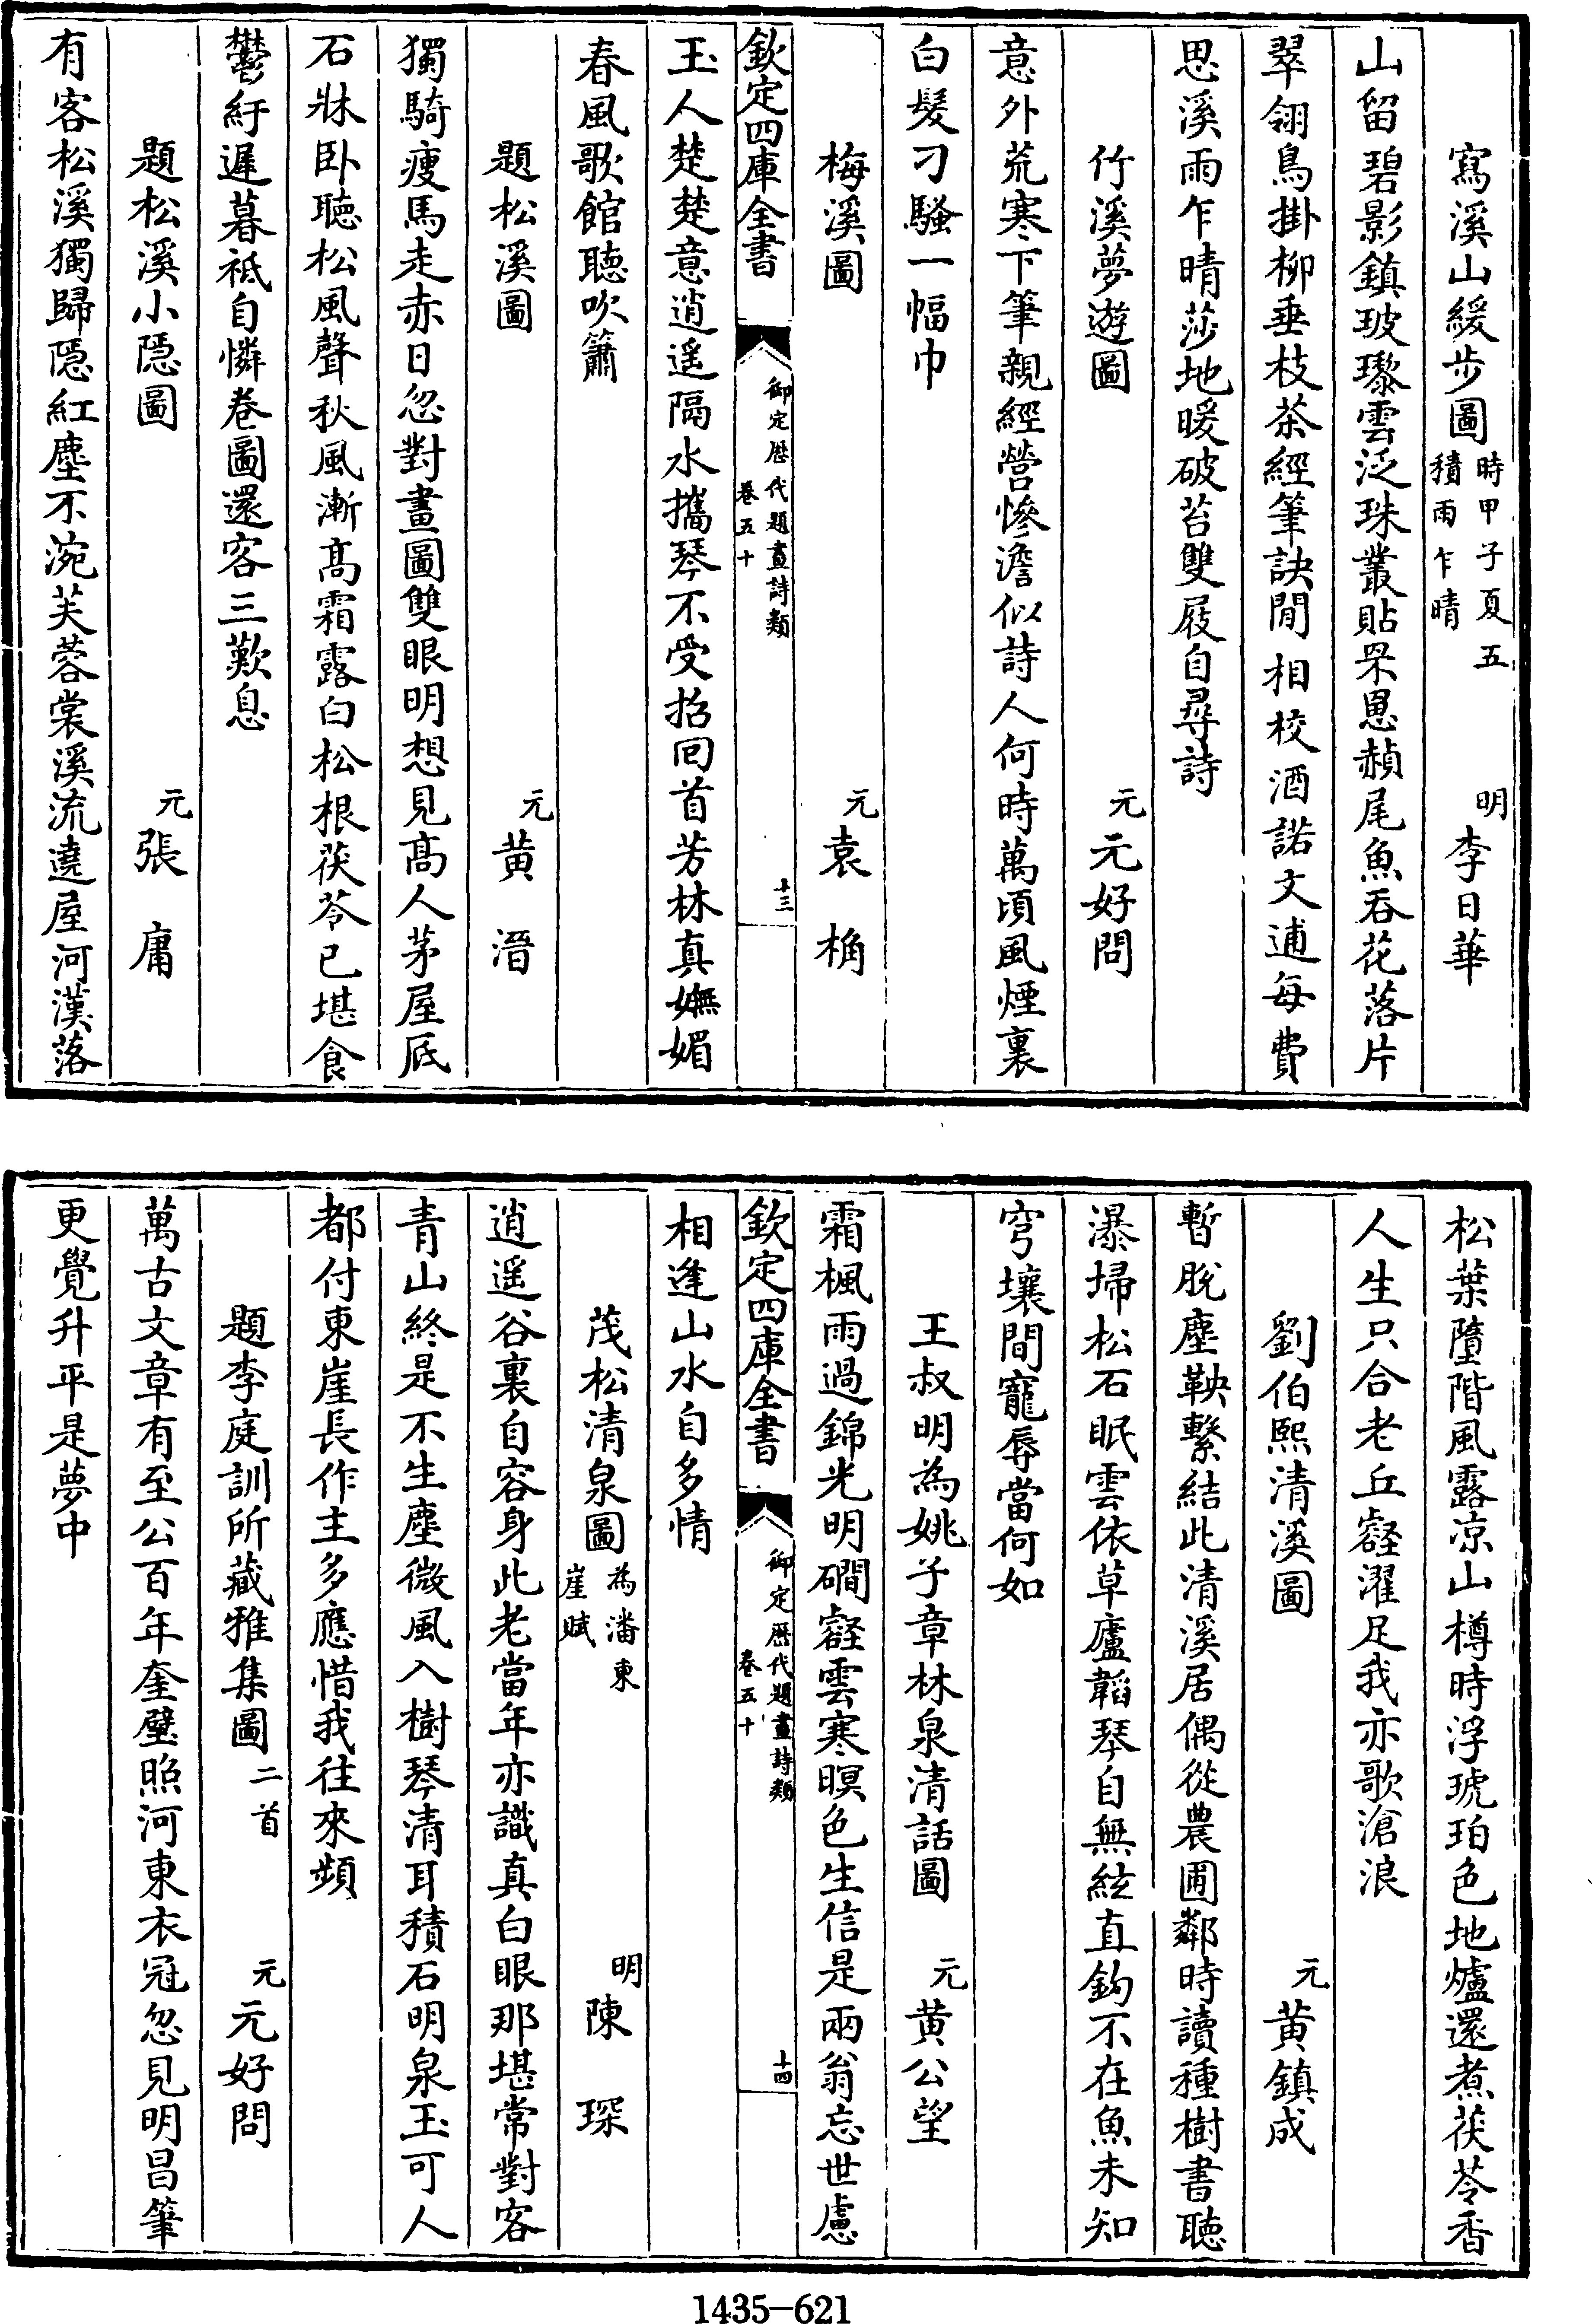 寫溪山緩步圖時甲子夏五積雨乍晴 明李日華
山留碧影鎮玻瓈雲泛珠叢貼罘罳赬尾魚吞花落片
翠翎鳥掛柳垂枝茶經筆訣閒相校酒諾文逋每費
思溪雨乍晴莎地暖破苔雙屐自尋詩
竹溪夢遊圖 元元好問
意外荒寒下筆親經營慘澹似詩人何時萬頃風煙裏
白髮刁騷一幅巾
梅溪圖 元袁桷
欽定四庫全書 御定歷代題畫詩類 卷五十 十三
玉人楚楚意逍遥隔水攜琴不受招回首芳林真嫵媚
春風歌館聽吹簫
題松溪圖 元黄溍
獨騎瘦馬走赤日忽對畫圖雙眼明想見高人茅屋底
石牀卧聽松風聲秋風漸高霜露白松根茯苓已堪食
鬱紆遲暮祗自憐卷圖還客三歎息
題松溪小隱圖 元張庸
有客松溪獨歸隱紅塵不涴芙蓉裳溪流遶屋河漢落
松葉墮階風露凉山樽時浮琥珀色地爐還煮茯苓香
人生只合老丘壑濯足我亦歌滄浪
劉伯熙清溪圖 元黄鎮成
暫脫塵鞅繫結此清溪居偶從農圃鄰時讀種樹書聽
瀑掃松石眠雲依草廬韜琴自無絃直鈎不在魚未知
穹壤間寵辱當何如
王叔明為姚子章林泉清話圖 元黄公望
霜楓雨過錦光明磵壑雲寒暝色生信是兩翁忘世慮
欽定四庫全書 御定歷代題畫詩類 卷五十 十四
相逢山水自多情
茂松清泉圖為潘東崖賦 明陳琛
逍遥谷裏自容身此老當年亦識真白眼那堪常對客
青山終是不生塵微風入樹琴清耳積石明泉玉可人
都付東崖長作主多應惜我往來頻
題李庭訓所藏雅集圖二首 元元好問
萬古文章有至公百年奎璧照河東衣冠忽見明昌筆
更覺升平是夢中
1435-621